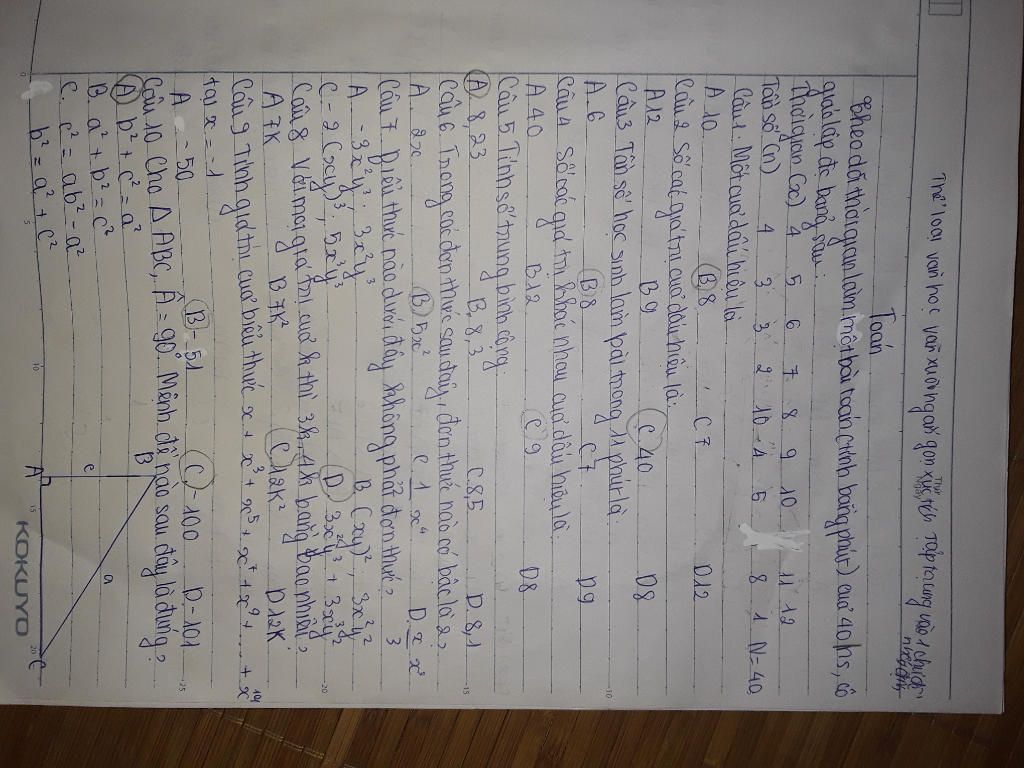 Thể loại văn học văn xuôi ngắn gọn xúc tích tập trung vào 1 chủ đề
Toán
Theo dõi thời gian làm một bài toán (tính bằng phút) của 40 hs, cô
giáo lập đc bảng sau:
Thời gian (x) 4 5 6 7 8 9 10 11 12
Tần số (n) 4 3 3 2 10 4 5 8 1 N=40
Câu 1. Mốt của dấu hiệu là
A 10 B, 8 C 7 D 12
Câu 2 Số các giá trị của dấu hiệu là:
A 12 B 9 C 40 D 8
Câu 3 Tần số học sinh làm bài trong 11 phút là:
A. 6 B, 8 C 7 D 9
Câu 4 Số các giá trị khác nhau của dấu hiệu là
A 40 B 12 C, 9 D 8
Câu 5 Tính số trung bình cộng.
A. 8,23 B, 8,3 C. 8,5 D, 8,1
Câu 6 Trong các đơn thức sau đây, đơn thức nào có bậc là 2
A. 2x B) 5x² C 1 x⁴ D x x³
Câu 7 Biểu thức nào dưới đây không phải đơn thức? 3
A. -3x²y³; 3x²y³ B (xy)²; 3x²y²
C. -2(xy)³; 5x³y³ D 3x²y³ + 3x³y²
Câu 8 Với mọi giá trị của k thì 3k.4k bằng bao nhiêu?
A 7K B 7K² C 12K² D 12K
Câu 9 Tính giá trị của biểu thức x + x³ + x⁵ + x⁷ + x⁹ + .... + x¹⁰¹
tại x = -1
A - 50 B. -51 C - 100 D - 101
Câu 10 Cho Δ ABC, Â = 90°. Mệnh đề nào sau đây là đúng?
A) b² + c² = a²
B. a² + b² = c²
C. c² = ab² - a²
b² = a² + c²
B
c
a
A
C
KOKUYO